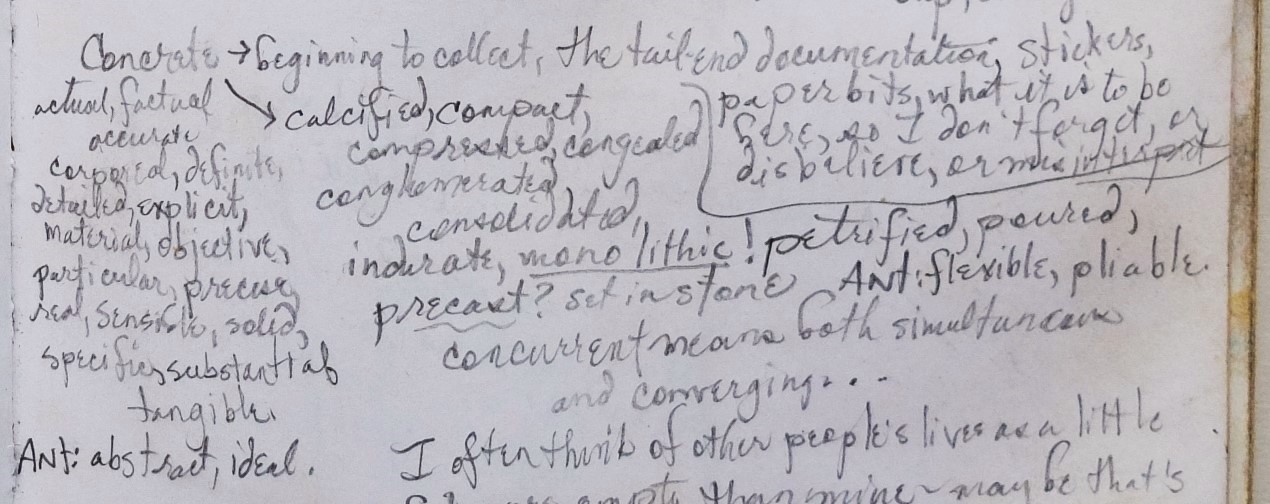 Concrete → beginning to collect, the tail-end documentation, stickers,
paper bits, what it is to be
here, so I don't forget, or
disbelieve, or misinterpret
actual, factual
accurate
corporeal, definite,
detailed, explicit,
material, objective,
particular, precise,
real, sensible, solid,
specific, substantial
tangible.
ANT: abstract, ideal.
calcified, compact,
compressed, congealed
conglomerated,
consolidated,
indurate, monolithic! petrified, poured,
precast? set in stone ANT: flexible, pliable.
concurrent means both simultaneous
and converging...
I often think of other people's lives as a little
than mine - may be that's